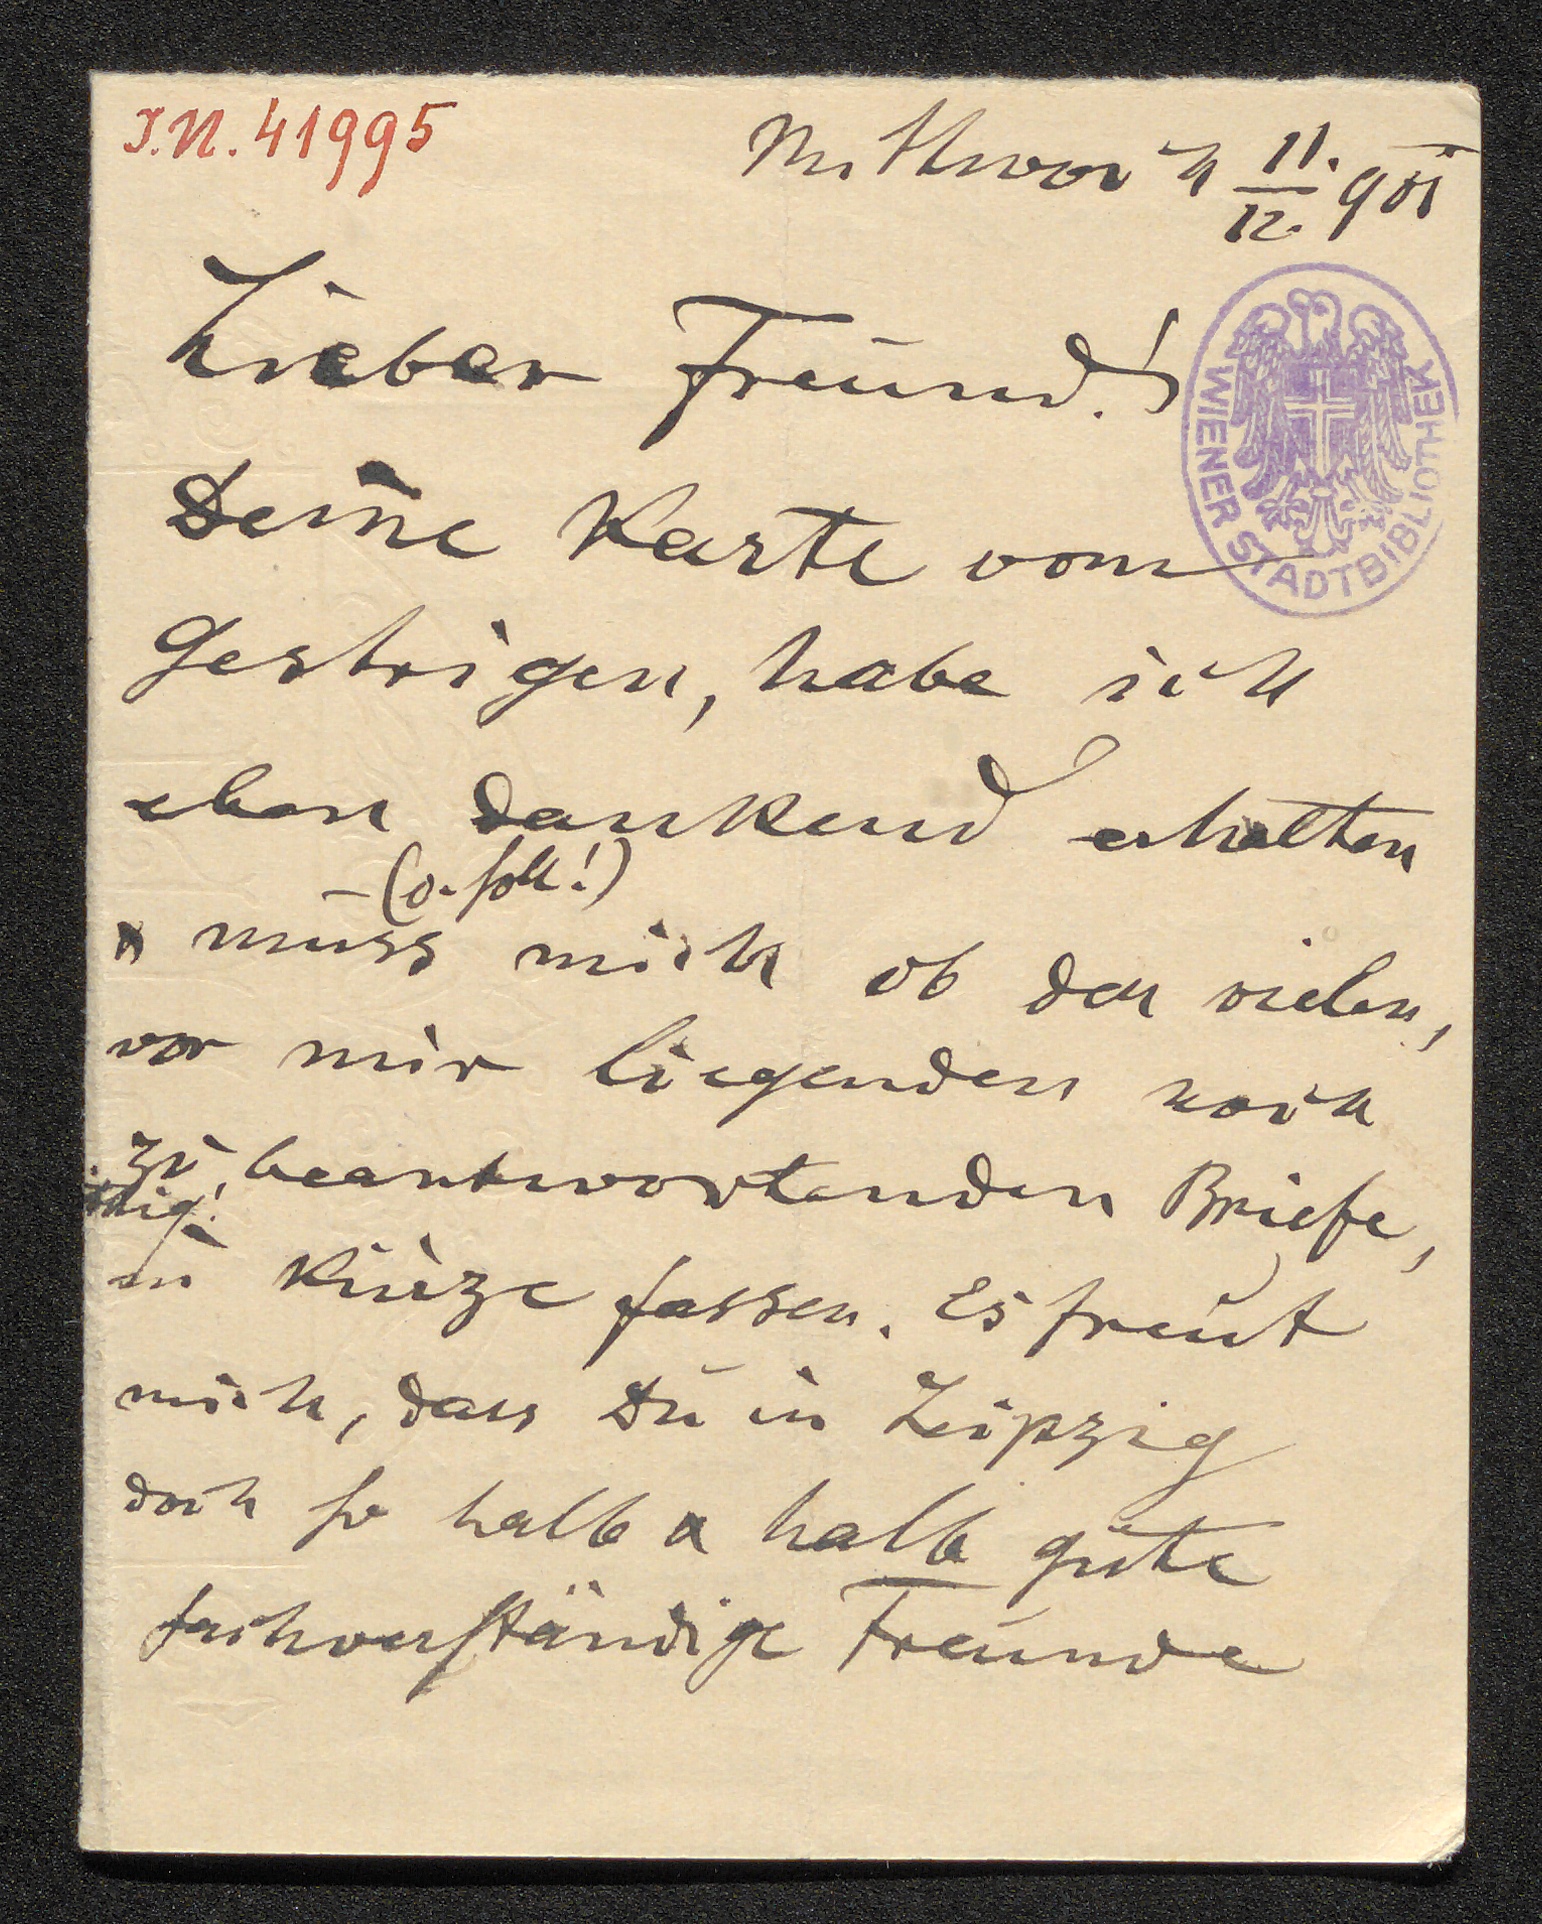 J.N. 41995
Mittwoch 11./12. 901
Lieber Freund!
WIENER STADTBIBLIOTHEK
Deine Karte vom
Gestrigen, habe ich
eben dankend erhalten
– (o. soll!)
& muss mich ob der vielen,
vor mir liegenden noch
zu beantwortenden Briefe,
in Kürze fassen. Es freut
mich, dass Du in Leipzig
doch so halb & halb gute
fachverständige Freunde